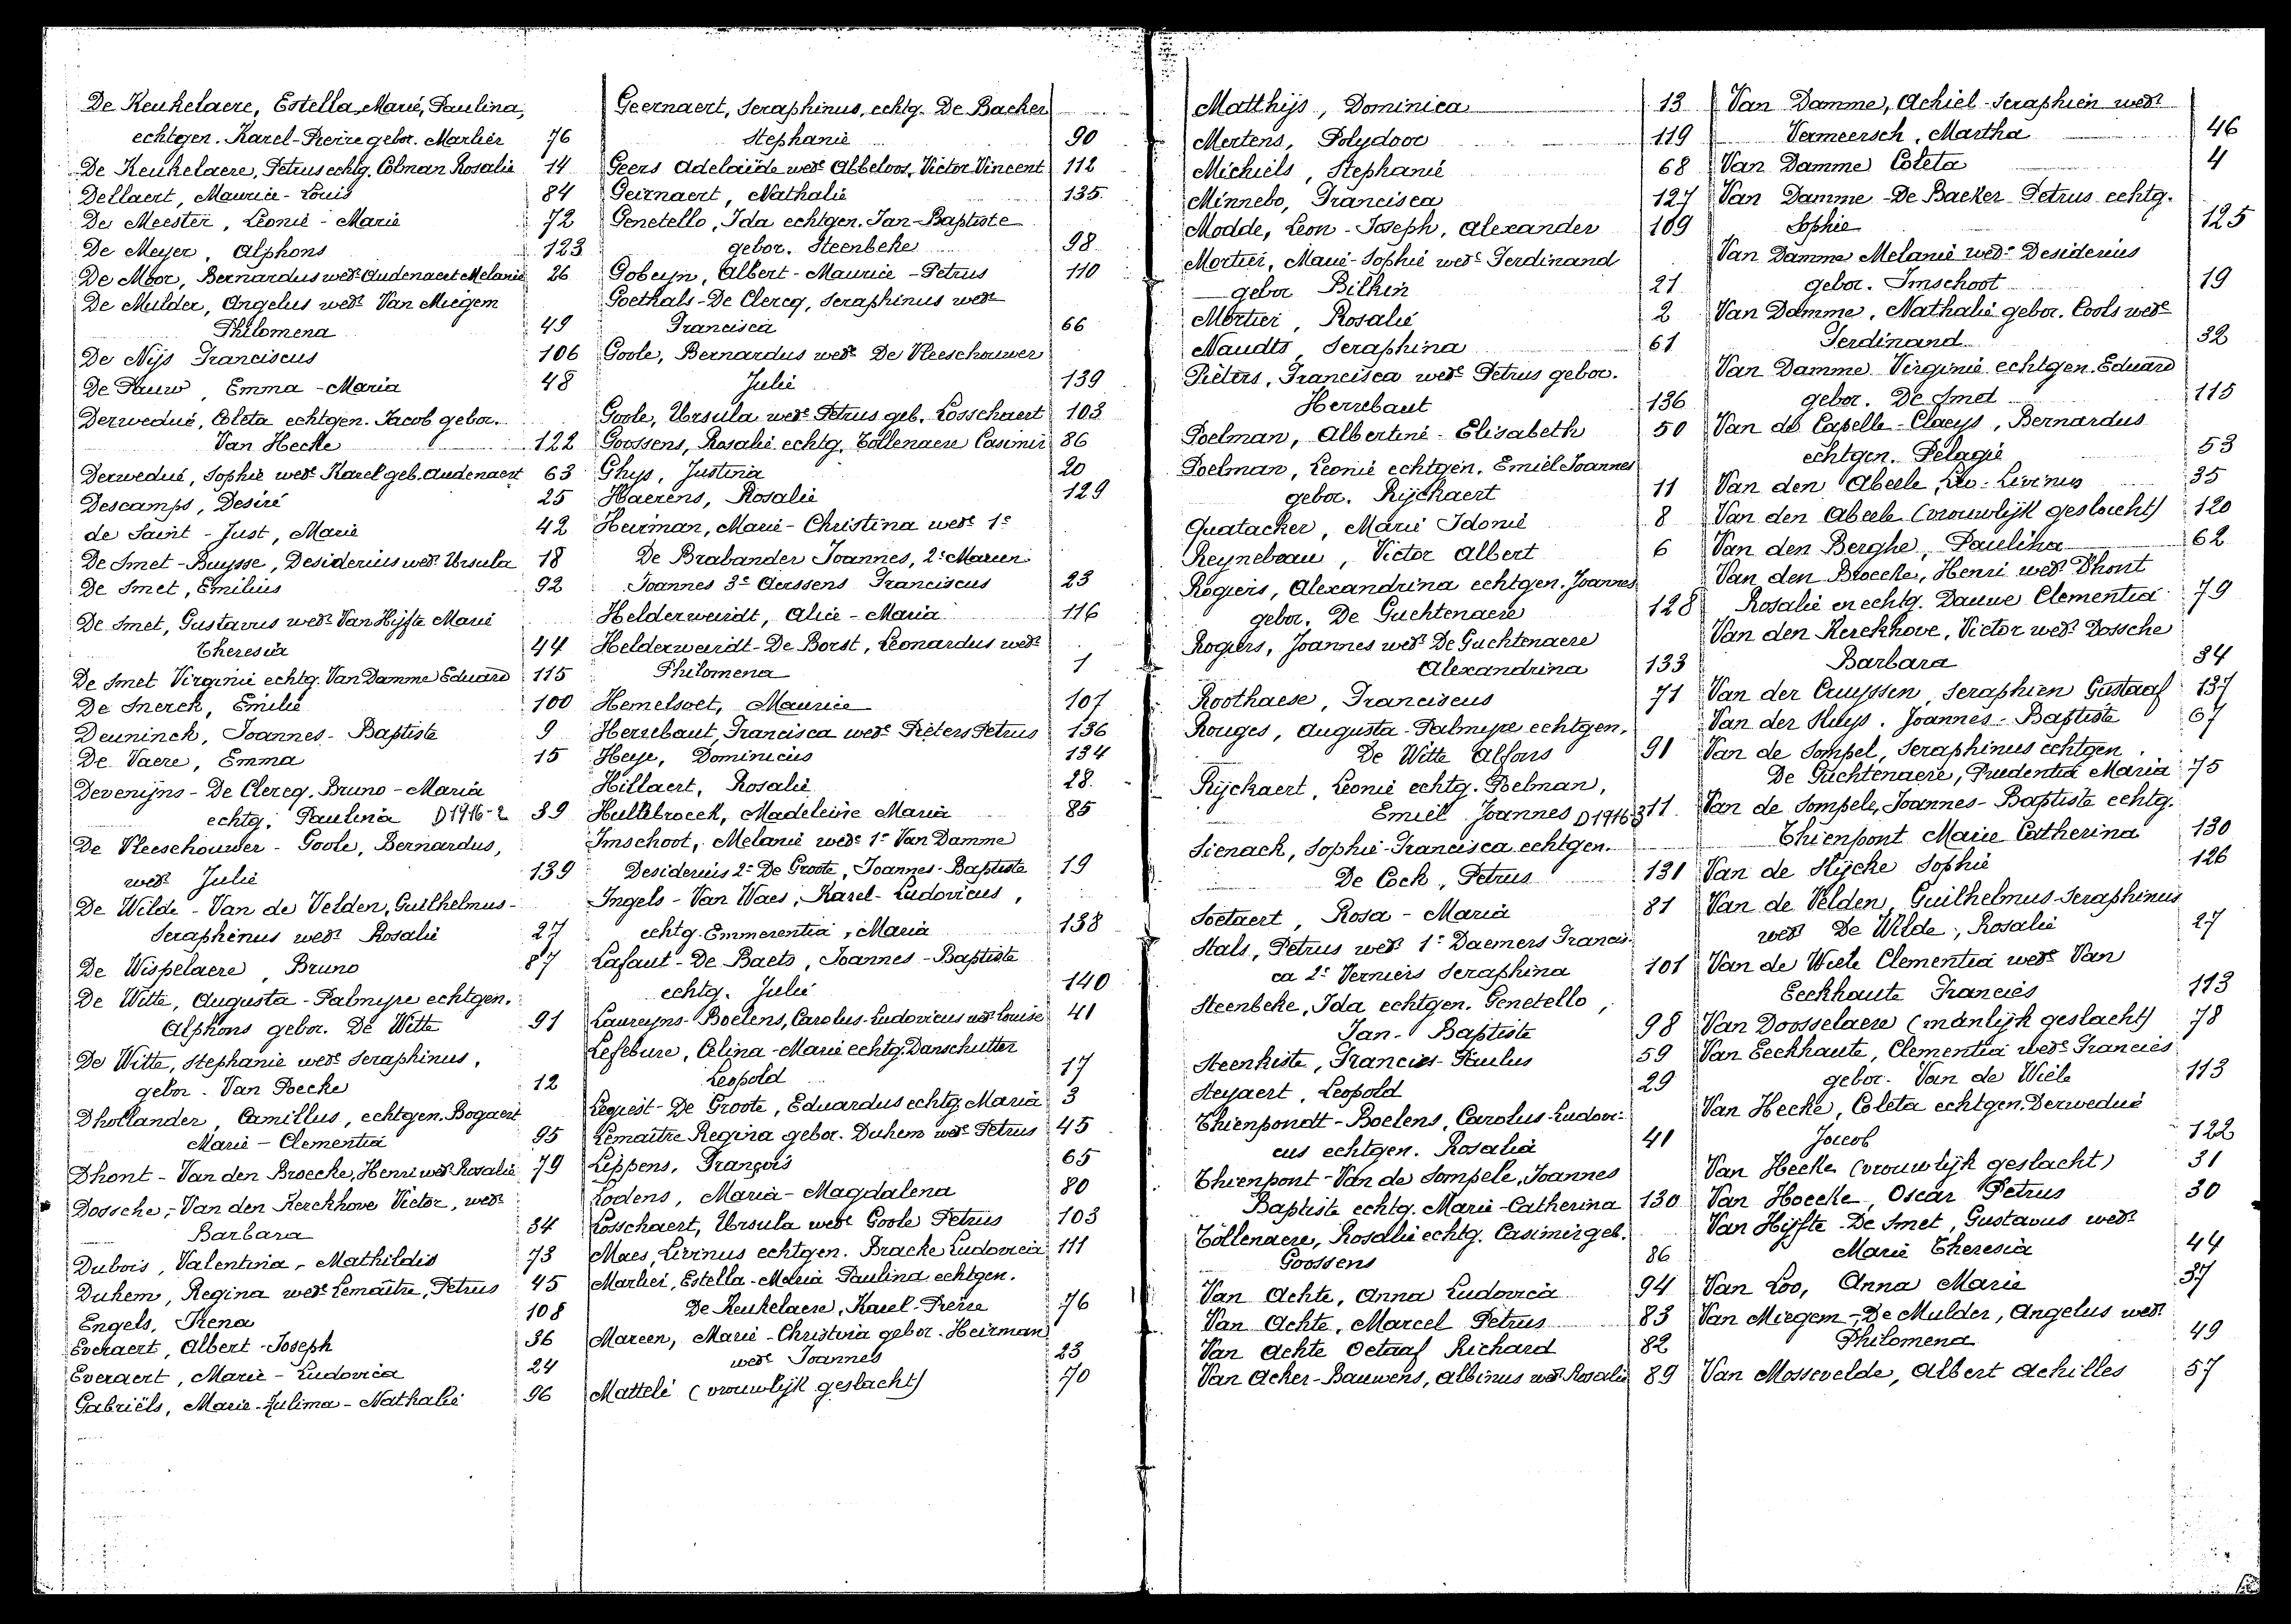 De Keukelaere, Estella, Marie, Paulina,
echtgen. Karel-Pierre gebor. Marlier 76
De Keukelaere, Petrus echtg. Colman Rosalie 14
Dellaert, Maurice-Louis 84
De Meester, Leonie-Marie 72
De Meyer, Alphons 123
De Moor, Bernardus wedr Oudenaert Melanie 26
De Mulder, Angelus wedr Van Miegem
Philomena 49
De Nijs Franciscus 106
De Pauw, Emma-Maria 48
Derwedué, Coleta echtgen. Jacob gebor.
Van Hecke 122
Derwedué, Sophie wede Karel geb. Oudenaert 63
Descamps, Desiré 25
de Saint-Just, Marie 42
De Smet-Buysse, Desiderius wedr Ursula 18
De Smet, Emilius 92
De Smet, Gustavus wedr Van Hijfte Marie
Theresia 44
De Smet Virginie echtg. Van Damme Eduard 115
De Snerck, Emilie 100
Deuninck, Joannes-Baptiste 9
De Vaere, Emma 15
Devenijns-De Clercq, Bruno-Maria
echtg. Paulina D1916-2 39
De Vleeschouwer-Goole, Bernardus,
wedr Julie 139
De Wilde-Van de Velden, Guilhelmus-
Seraphinus wedr Rosalie 27
De Wispelaere, Bruno 87
De Witte, Augusta-Palmyre echtgen.
Alphons gebor. De Witte 91
De Witte, Stephanie wede Seraphinus,
gebor. Van Poecke 12
Dhollander, Camillus, echtgen. Bogaert
Marie-Clementia 95
Dhont-Van den Broecke, Henri wedr Rosalie 79
Dossche,-Van den Kerckhove Victor, wedr
Barbara 34
Dubois, Valentina-Mathildis 73
Duhem, Regina wede Lemaître, Petrus 45
Engels, Irena 108
Everaert, Albert-Joseph 36
Everaert, Marie-Ludovica 24
Gabriëls, Marie-Zulima-Nathalie 96
Geernaert, Seraphinus, echtg. De Backer
Stephanie 90
Geers Adelaïde wede Abbeloos, Victor Vincent 112
Geirnaert, Nathalie 135
Genetello, Ida echtgen. Jan-Baptiste
gebor. Steenbeke 98
Gobeyn, Albert-Maurice-Petrus 110
Goethals-De Clercq, Seraphinus wedr
Francisca 66
Goole, Bernardus wedr De Vleeschouwer
Julie 139
Goole, Ursula wede Petrus geb. Losschaert 103
Goossens, Rosalie echtg. Tollenaere Casimir 86
Ghys, Justina 20
Haerens, Rosalie 129
Heirman, Marie-Christina wede 1e
De Brabander Joannes, 2e Mareen
Joannes 3e Aerssens Franciscus 23
Helderweirdt, Alice-Maria 116
Helderweirdt-De Borst, Leonardus wedr
Philomena 1
Hemelsoet, Maurice 107
Herrebaut, Francisca wede Pieters Petrus 136
Heye, Dominicus 134
Hillaert, Rosalie 28
Hullebroeck, Madeleine Maria 85
Imschoot, Melanie wede 1e Van Damme
Desiderius 2e De Groote, Joannes-Baptiste 19
Ingels-Van Waes, Karel-Ludovicus,
echtg. Emmerentia, Maria 138
Lafaut-De Baets, Joannes-Baptiste
echtg. Julie 140
Laureyns-Boelens, Carolus-Ludovicus wedr Louise 41
Lefebure, Celina-Marie echtg. Danschutter
Leopold 17
Lequest-De Groote, Eduardus echtg. Maria 3
Lemaître Regina gebor. Duhem wede Petrus 45
Lippens, François 65
Lodens, Maria-Magdalena 80
Losschaert, Ursula wede Goole Petrus 103
Maes, Livinus echtgen. Bracke Ludovicia 111
Marlier, Estella-Maria Paulina echtgen.
De Keukelaere, Karel-Pierre 76
Mareen, Marie-Christina gebor. Heirman
wede Joannes 23
Matteli (vrouwlijk geslacht) 70
Matthijs, Dominica 13
Mertens, Polydoor 119
Michiels, Stephanie 68
Minnebo, Francisca 127
Modde, Leon-Joseph, Alexander 109
Mortier, Marie-Sophie wede Ferdinand
gebor Bilkin 21
Mortier, Rosalie 2
Naudts, Seraphina 61
Pieters, Francisca wede Petrus gebor.
Herrebaut 136
Poelman, Albertine-Elisabeth 50
Poelman, Leonie echtgen. Emiel Joannes
gebor. Rijckaert 11
Quatacker, Marie Idonie 8
Reynebeau, Victor Albert 6
Rogiers, Alexandrina echtgen. Joannes
gebor. De Guchtenaere 128
Rogiers, Joannes wedr De Guchtenaere
Alexandrina 133
Roothaese, Franciscus 71
Rouges, Augusta-Palmyre echtgen.
De Witte Alfons 91
Rijckaert, Leonie echtg. Poelman,
Emiel Joannes D1916-3 11
Sienack, Sophie-Francisca echtgen.
De Cock, Petrus 131
Soetaert, Rosa-Maria 81
Stals, Petrus wedr 1e Daemers Francis-
ca 2e Verniers Seraphina 101
Steenbeke, Ida echtgen. Genetello,
Jan-Baptiste 98
Steenkiste, Francies-Paulus 59
Steyaert, Leopold 29
Thienpondt-Boelens, Carolus-Ludovi-
cus echtgen. Rosalia 41
Thienpont-Van de Sompele, Joannes
Baptiste echtg. Marie-Catherina 130
Tollenaere, Rosalie echtg. Casimir geb.
Goossens 86
Van Achte, Anna Ludovica 94
Van Achte, Marcel Petrus 83
Van Achte Octaaf Richard 82
Van Acker-Bauwens, Albinus wedr Rosalie 89
Van Damme, Achiel-Seraphien wedr
Vermeersch, Martha 46
Van Damme Coleta 4
Van Damme-De Backer Petrus echtg.
Sophie 125
Van Damme Melanie wede Desiderius
gebor. Imschoot 19
Van Damme, Nathalie gebor. Cools wede
Ferdinand 32
Van Damme Virginie echtgen. Eduard
gebor. De Smet 115
Van de Capelle-Claeys, Bernardus
echtgen. Pelagie 53
Van den Abeele, Leo-Livinus 35
Van den Abeele (vrouwlijk geslacht) 120
Van den Berghe, Paulina 62
Van den Broecke, Henri wedr Dhont
Rosalie en echtg. Dauwe Clementia 79
Van den Kerckhove, Victor wedr Dossche
Barbara 34
Van der Cruyssen, Seraphien Gustaaf 137
Van der Sluys, Joannes-Baptiste 67
Van de Sompel, Seraphinus echtgen.
De Guchtenaere, Prudentia Maria 75
Van de Sompele, Joannes-Baptiste echtg.
Thienpont Marie Catherina 130
Van de Slijcke Sophie 126
Van de Velden, Guilhelmus-Seraphinus
wedr De Wilde, Rosalie 27
Van de Wiele Clementia wede Van
Eeckhaute Francies 113
Van Doosselaere (manlijk geslacht) 78
Van Eeckhaute, Clementia wede Francies
gebor. Van de Wiele 113
Van Hecke, Coleta echtgen. Derwedué
Jacob 122
Van Hecke (vrouwlijk geslacht) 31
Van Hoecke, Oscar Petrus 30
Van Hijfte-De Smet, Gustavus wedr
Marie Theresia 44
Van Loo, Anna Marie 37
Van Miegem-De Mulder, Angelus wedr
Philomena 49
Van Mossevelde, Albert Achilles 57